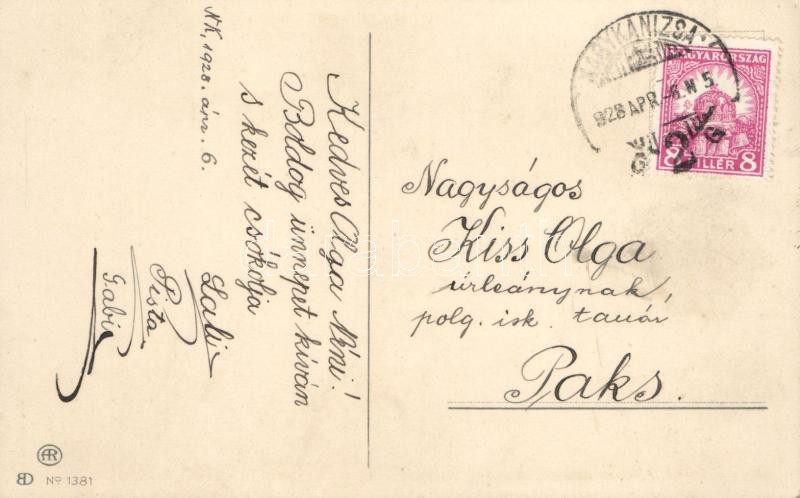 NK, 1928. ápr. 6.
Kedves Olga Néni!
Boldog ünnepet kíván
s kezét csókolja
Lali
Pista
Gabi
NAGYKANIZSA
928 APR -6. N 5
MAGYARORSZÁG
8 FILLÉR 8
Nagyságos
Kiss Olga
úrleánynak,
polg. isk. tanár
Paks.
AR
BD No 1381
darabanth